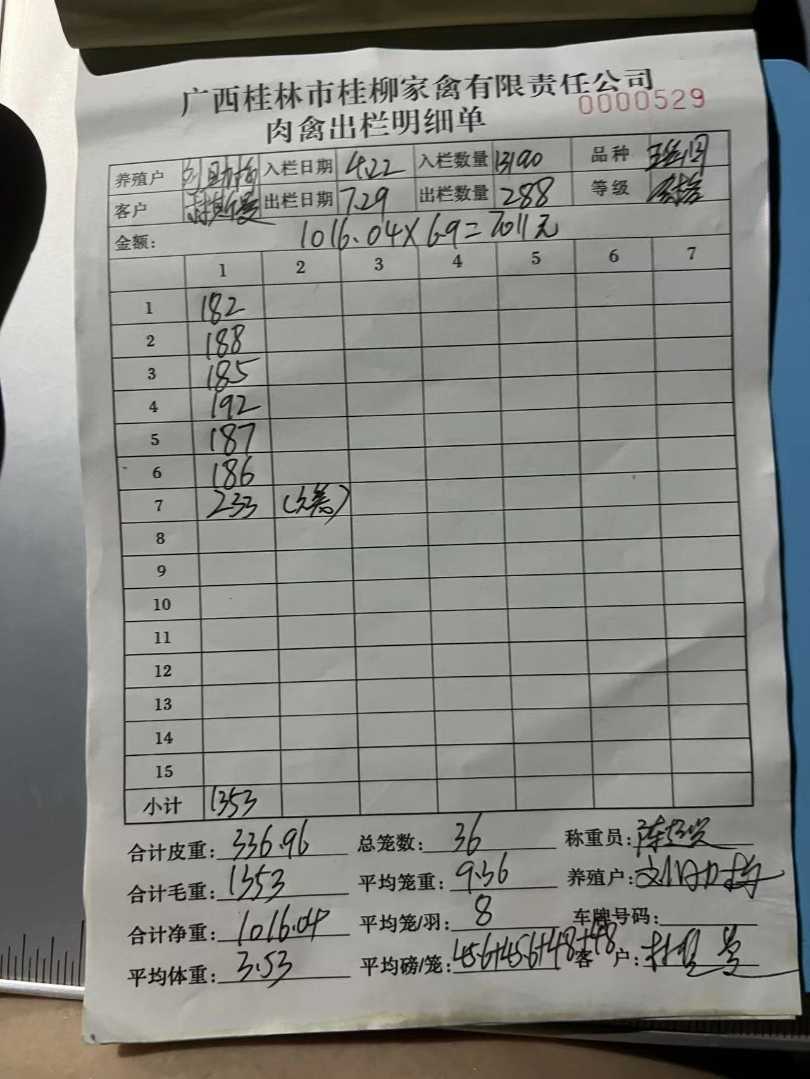 广西桂林市桂柳家禽有限责任公司
0000529
肉禽出栏明细单
养殖户 入栏日期 4.22 入栏数量 13190 品种
客户 出栏日期 7.29 出栏数量 288 等级
金额: 1016.04×6.9=7011元
1 2 3 4 5 6 7
1 182
2 188
3 185
4 192
5 187
6 186
7 233
8
9
10
11
12
13
14
15
小计 1353
合计皮重: 336.96 总笼数: 36 称重员:
合计毛重: 1353 平均笼重: 9.36 养殖户:
合计净重: 1016.04 平均笼/羽: 8 车牌号码:
平均体重: 3.53 平均磅/笼: 45.6+45.6+48+48 客户: